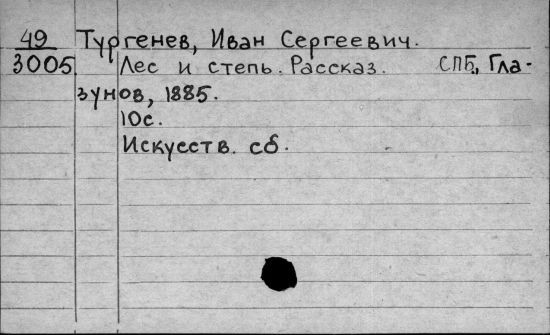 49 Тургенев, Иван Сергеевич.
3005 Лес и степь. Рассказ. СПБ, Гла-
зунов, 1885.
10с.
Искусств. сб.